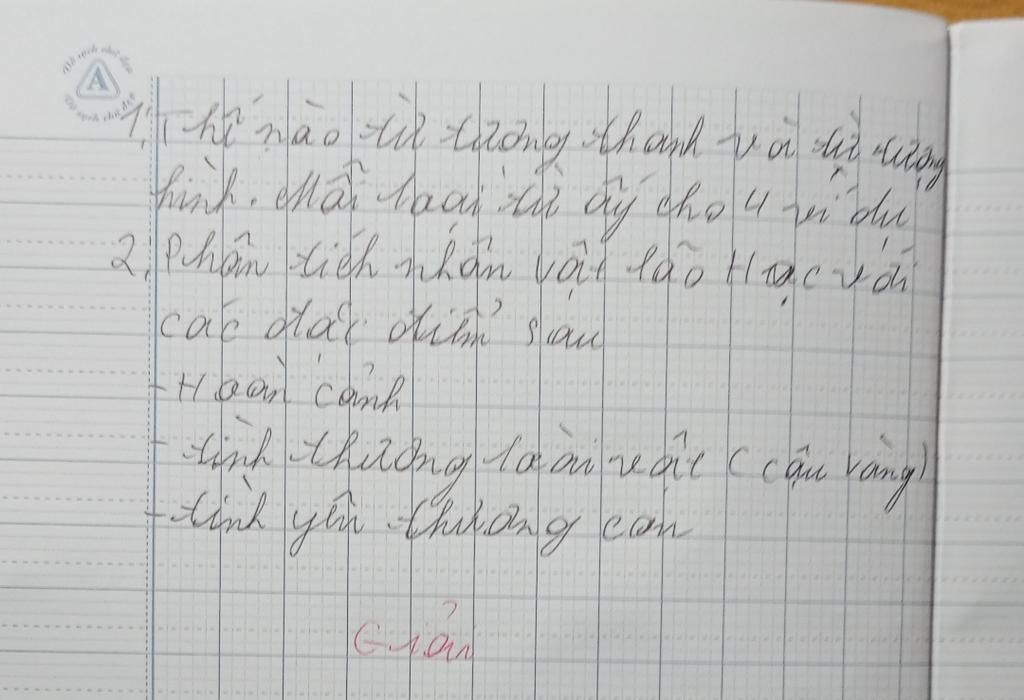 Vở sạch chữ đẹp
A
Vở sạch chữ đẹp
1, Thế nào từ tượng thanh và từ tượng
hình. Mỗi loại từ ấy cho 4 ví dụ
2, Phân tích nhân vật lão Hạc với
các đặc điểm sau
- Hoàn cảnh
- tình thương loài vật ( cậu vàng)
- tình yên thương con
Giải